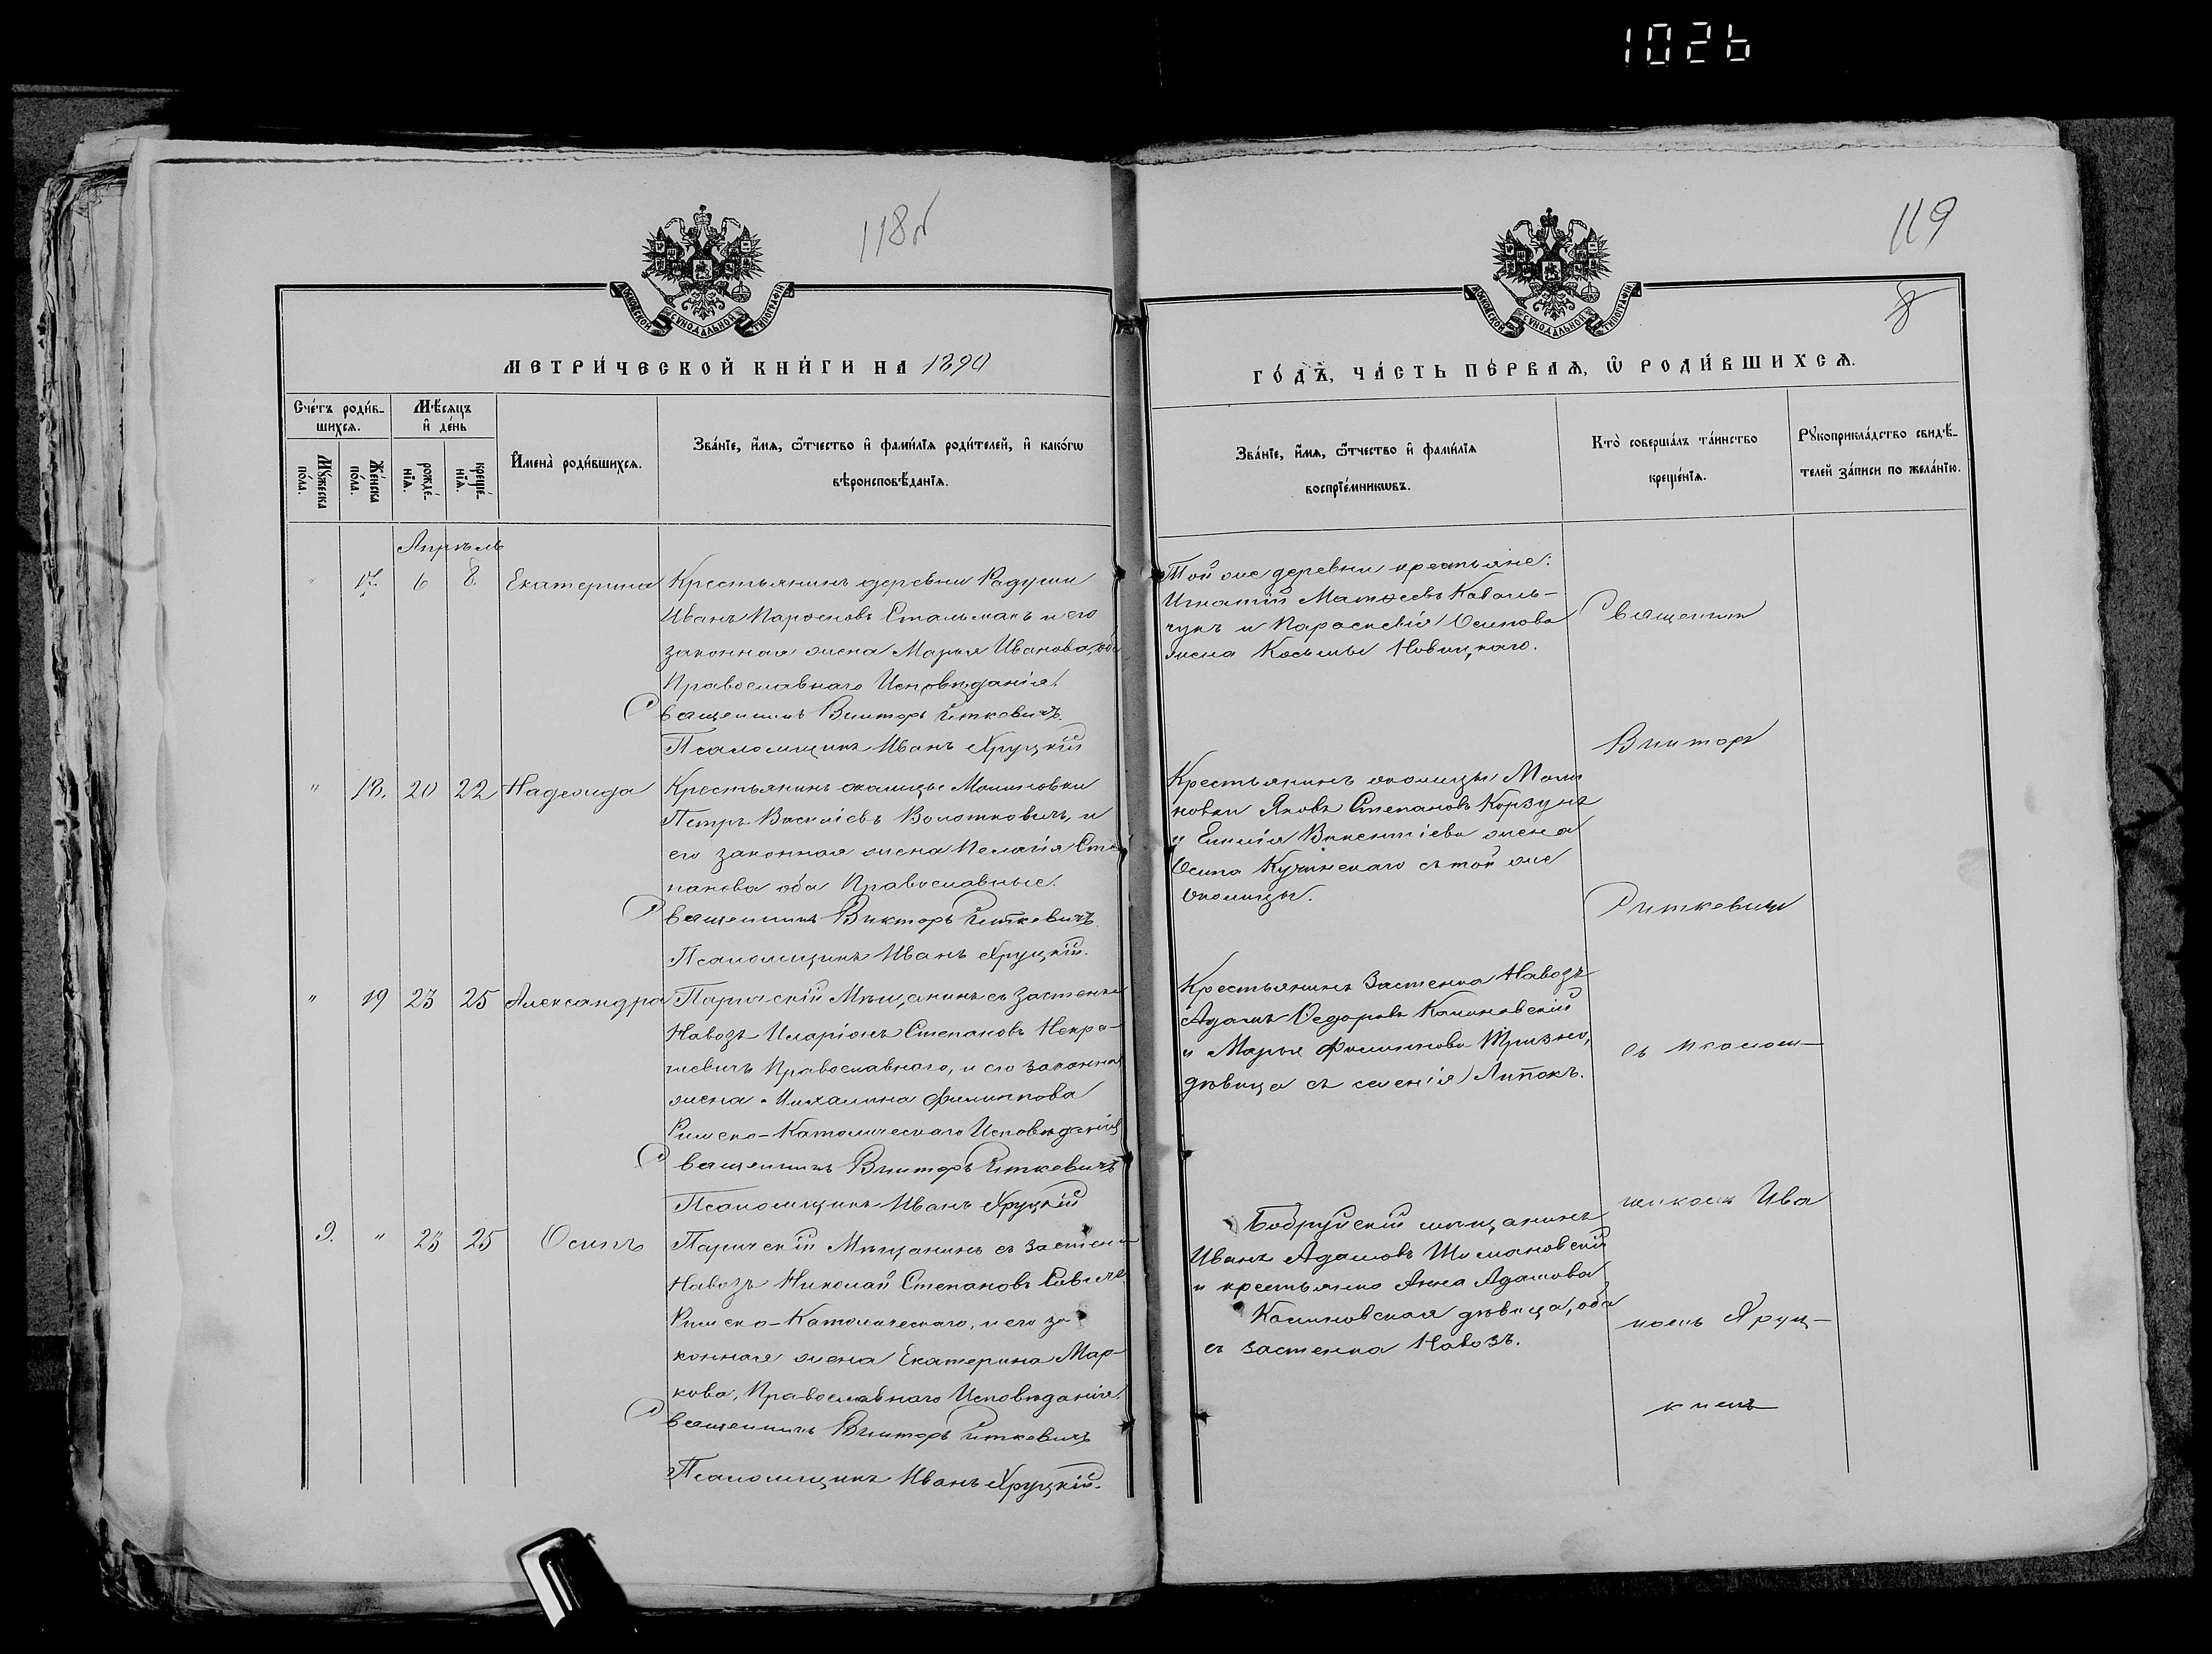 1026
118об
119
8
МОСКОВСКОЙ СѴНОДАЛЬНОЙ ТИПОГРАФІИ
МОСКОВСКОЙ СѴНОДАЛЬНОЙ ТИПОГРАФІИ
МЕТРИ́ЧЕСКОЙ КНИ́ГИ НА 1890
ГО́ДЪ, ЧА́СТЬ ПЕ́РВАѦ, Ѡ҆ РОДИ́ВШИХСѦ.
Сче́тъ роди́в-
шихсѧ.
Мꙋ́жеска
по́ла.
Же́нска
по́ла.
Мѣ́сѧцъ
и҆ де́нь
рожде́-
нїѧ.
креще́-
нїѧ.
И҆мена̀ роди́вшихсѧ.
Зва́нїе, и҆́мѧ, ѻ҆́тчество и҆ фами́лїѧ роди́телей, и҆ како́гѡ
вѣроисповѣ́данїѧ.
Зва́нїе, и҆́мѧ, ѻ҆́тчество и҆ фами́лїѧ
воспрїе́мникѡвъ.
Кто̀ соверша́лъ та́инство
креще́нїѧ.
Рꙋкоприкла́дство свидѣ́-
телей за́писи по жела́нїю.
Апрѣль
" 17. 6 8 Екатерина
Крестьянинъ деревни Радуши
Иванъ Стальмахъ и его
законная жена Марья Иванова, оба
Православнаго Исповѣданія.
Священникъ Викторъ Риткевичъ.
Псаломщикъ Иванъ Хруцкій
Той же деревни крестьяне:
Игнатій Матѳеевъ Коваль-
чукъ и Параскевія Осипова
жена Косьмы Новицкаго.
" 18. 20 22 Надежда
Крестьянинъ околицы Малиновки
Петръ Василіевъ Волотковичъ, и
его законная жена Пелагія Сте
панова оба Православные.
Священникъ Викторъ Риткевичъ.
Псаломщикъ Иванъ Хруцкій.
Крестьянинъ околицы Мали
новки Яковъ Степановъ Корзунъ
и Викентіева жена
Осипа Кучинскаго съ той же
околицы.
" 19 23 25 Александра
Паричскій Мѣщанинъ съ застенка
Навозъ Иларіонъ Степановъ Некра-
шевичъ Православнаго, и его законная
жена Михалина Филиппова
Римско-Католическаго Исповѣданія
Священникъ Викторъ Риткевичъ
Псаломщикъ Иванъ Хруцкій
Крестьянинъ Застенка Навозъ
Адамъ Ѳедоровъ Калиновскій
и Марья Филиппова Тризно,
дѣвица съ селенія Липокъ.
9. " 23 25 Осипъ
Паричскій Мѣщанинъ съ застенка
Навозъ Николай Степановъ
Римско-Католическаго, и его за
конная жена Екатерина Мар-
кова, Православнаго Исповѣданія.
Священникъ Викторъ Риткевичъ
Псаломщикъ Иванъ Хруцкій.
Бобруйскій мѣщанинъ
Иванъ Адамовъ Шимановскій
и крестьянка Анна Адамова
Калиновская дѣвица, оба
съ застенка Навозъ.
Священник
Виктор
Риткевич
съ псалом-
щиком Ива
номъ Хруц-
кимъ